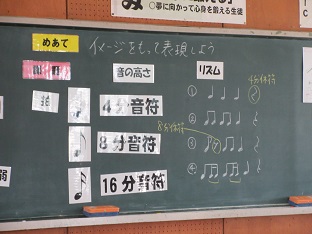 ○夢に向かって心身を鍛える生徒
めあて
イメージをもって表現しよう
音の高さ
リズム
4分休符
4分音符
①
8分休符
8分音符
②
③
16分音符
④
弱